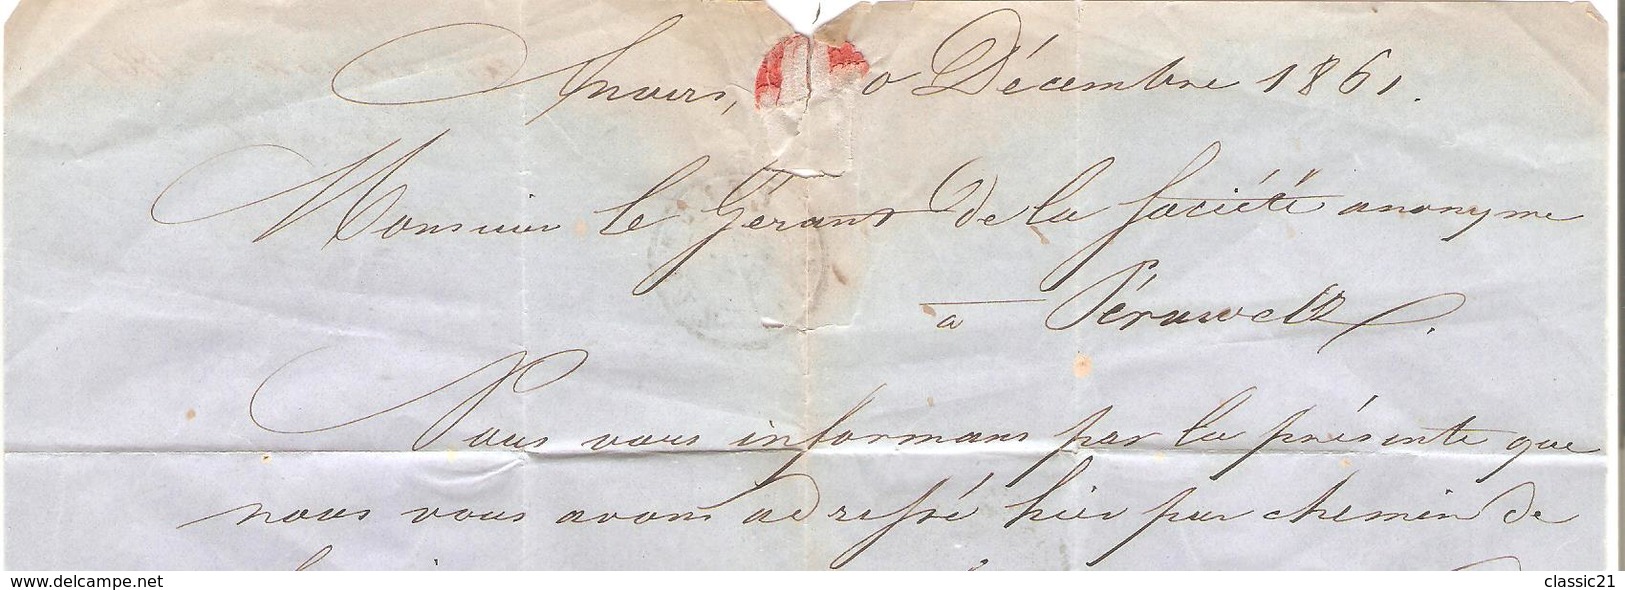 Anvers, 0 Décembre 1861.
Monsieur le Gérant de la Société anonyme
à Péruwelz.
Nous vous informons par la présente que
nous vous avons adressé hier par chemin de
www.delcampe.net
classic21